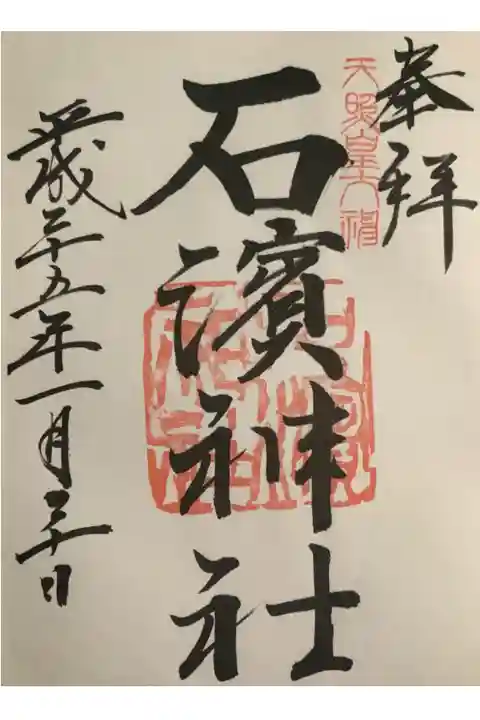 奉拝
天照皇大神
石濱神社
平成二十五年一月三十日